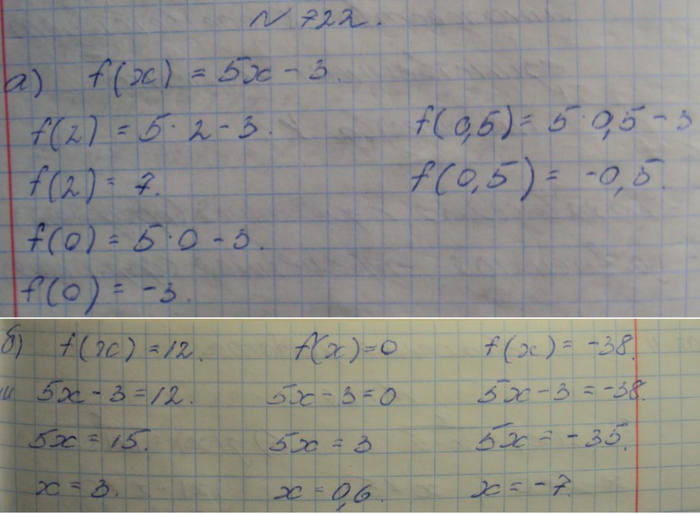 N 722.
а) f(x) = 5x - 3.
f(2) = 5 · 2 - 3.
f(2) = 7.
f(0) = 5 · 0 - 3.
f(0) = -3.
f(0,5) = 5 · 0,5 - 3
f(0,5) = -0,5.
б) f(x) = 12. f(x) = 0 f(x) = -38.
5x - 3 = 12. 5x - 3 = 0 5x - 3 = -38.
5x = 15. 5x = 3 5x = -35.
x = 3. x = 0,6. x = -7